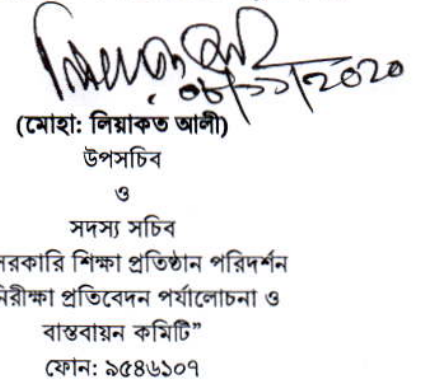 ০৮/১১/২০২০
(মোহা: লিয়াকত আলী)
উপসচিব
ও
সদস্য সচিব
সরকারি শিক্ষা প্রতিষ্ঠান পরিদর্শন
নিরীক্ষা প্রতিবেদন পর্যালোচনা ও
বাস্তবায়ন কমিটি”
ফোন: ৯৫৪৬১০৭